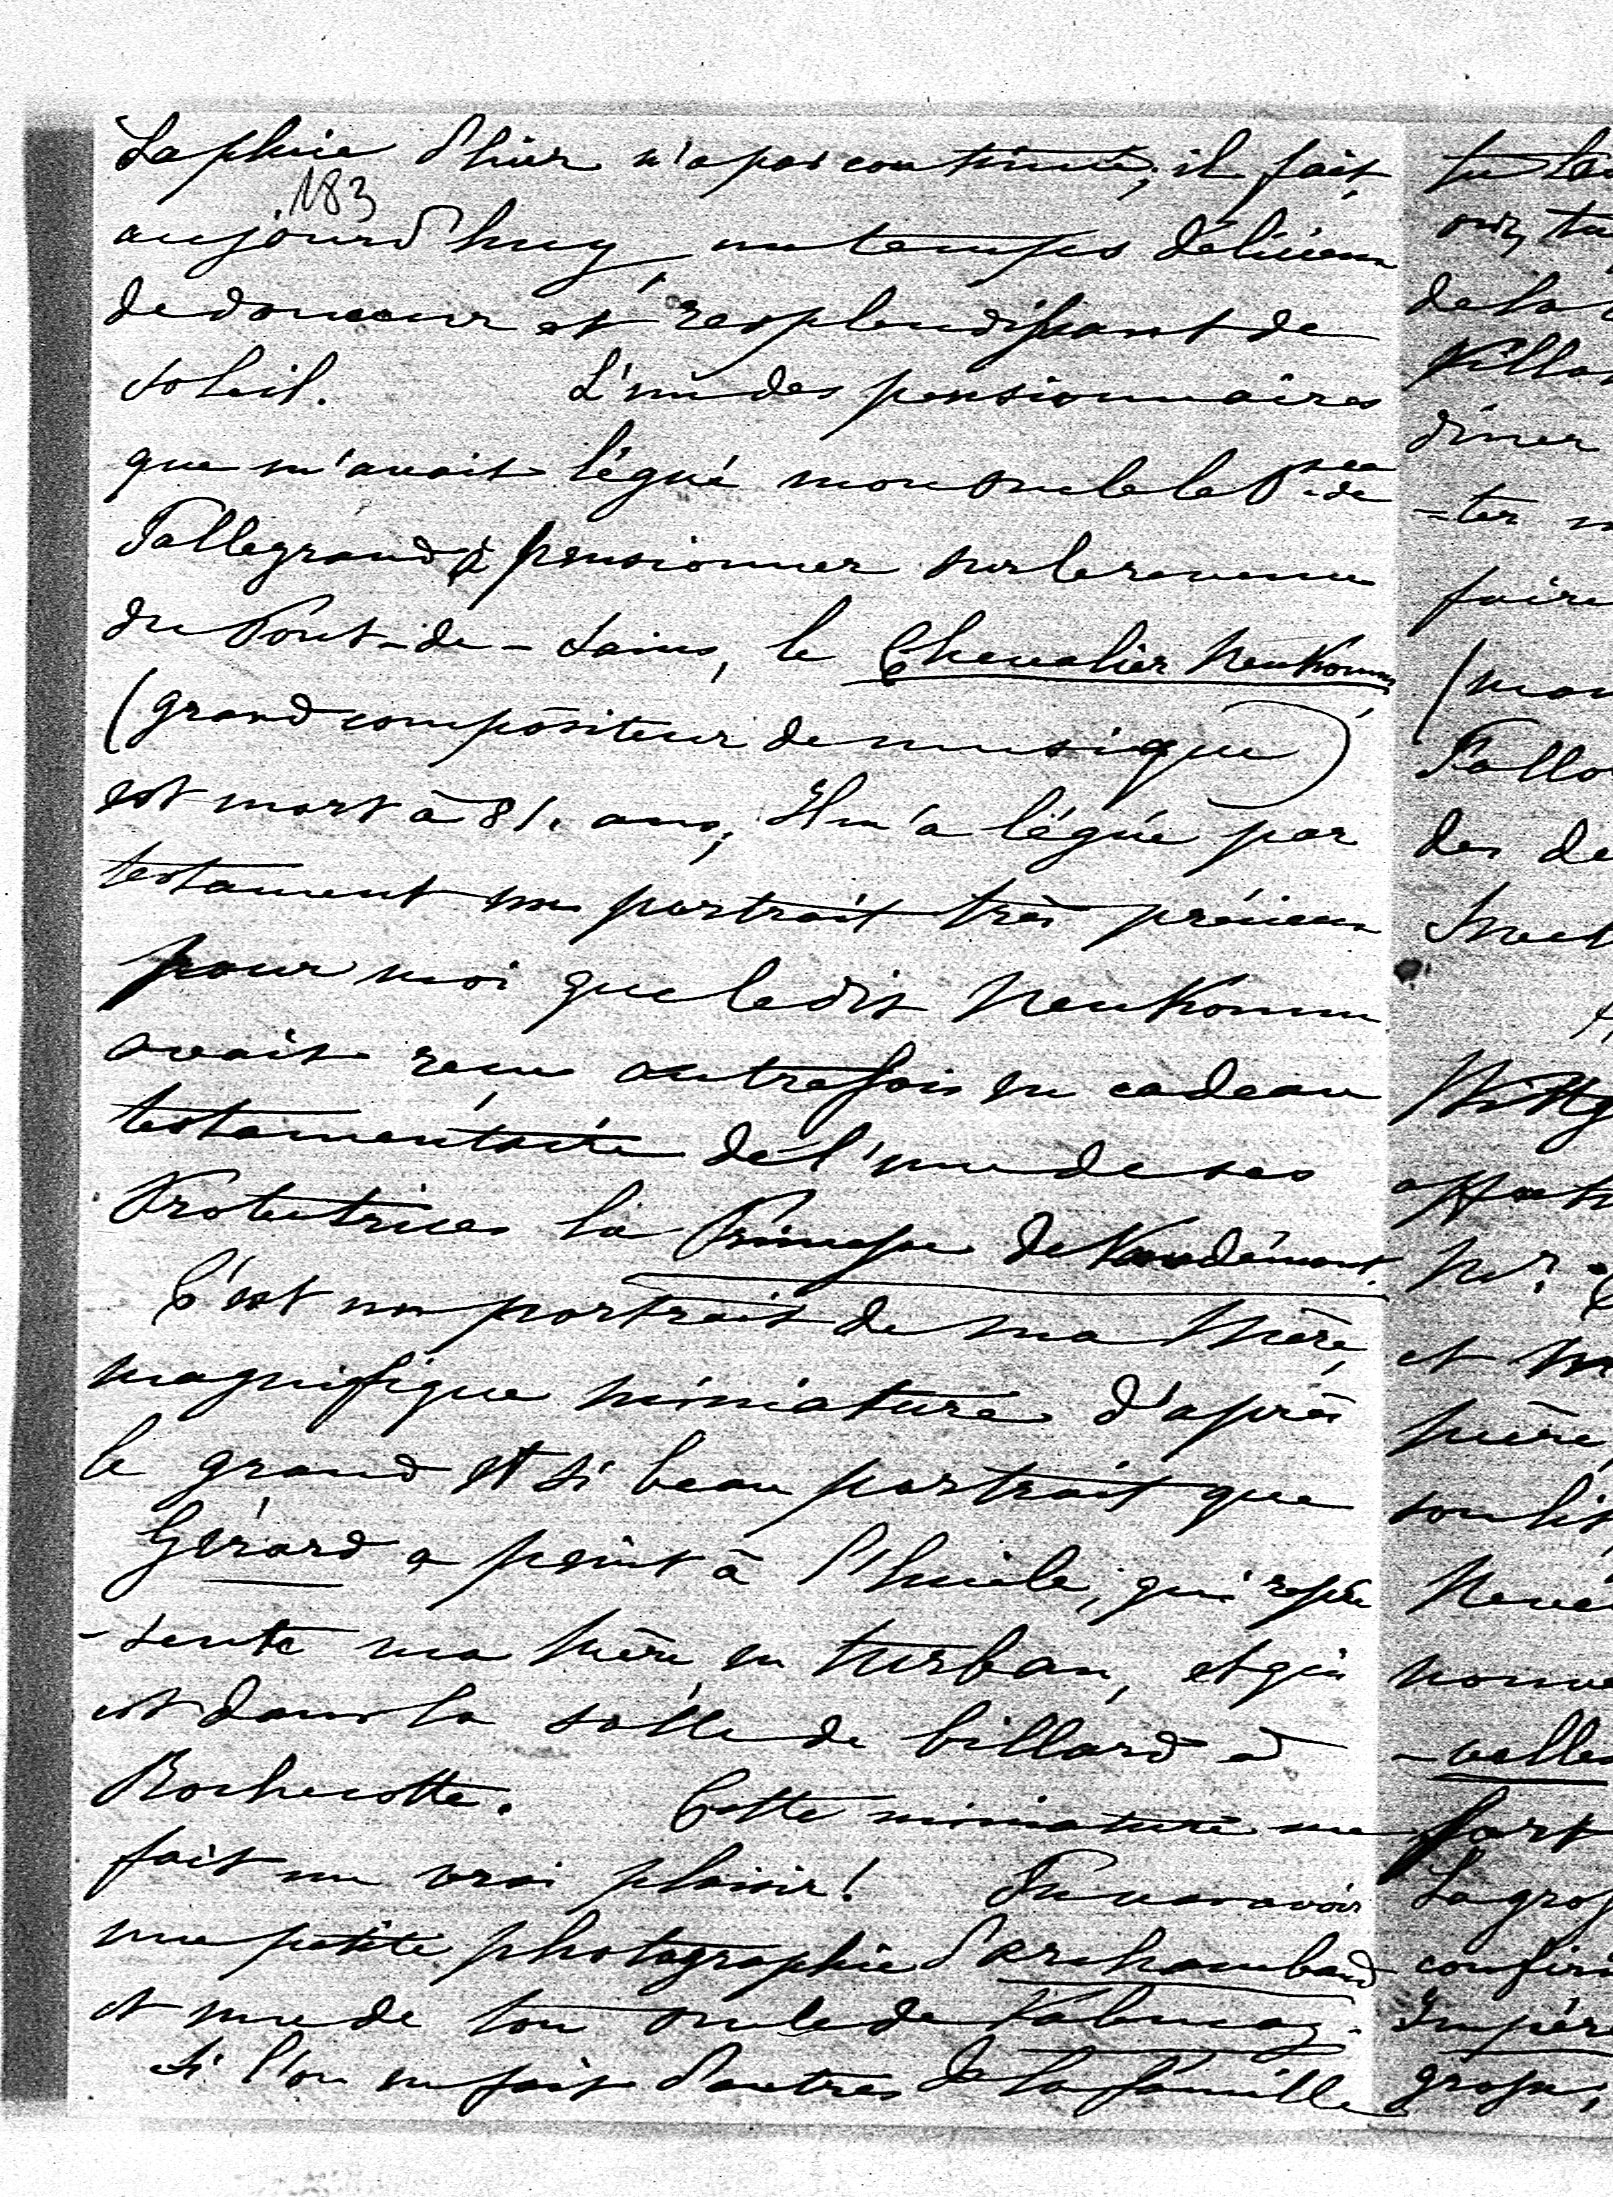 La pluie d'hier n'a pas continué; il fait
183
aujourd'huy, un temps délicieux
de douceur et resplendissant de
soleil. L'un des pensionnaires
que m'avait légué mon oncle le P.ce de
Talleyrand à pensionner sur les revenus
du Pont-de-Sains, le Chevalier Neukomm,
(grand compositeur de musique)
est mort à 81. ans; Il m'a légué par
testament un portrait très précieux
pour moi que le dit Neukomm
avait reçu autrefois en cadeau
testamentaire de l'une de ses
Protectrices la Princesse de Vaudémont.
C'est un portrait de ma Mère,
magnifique miniature d'après
le grand et si beau portrait que
Gérard a peint à l'huile, qui repré
-sente ma Mère en turban, et qui
est dans la salle de billard à
Rochecotte. Cette miniature me
fait un vrai plaisir! Tu vas avoir
une petite photographie d'Archambaud
et une de ton oncle de Valençay.
Si l'on en fait d'autres de la famille
tu
oui, tu
de la
diner
-ter
faire
des de
et
Mère,
-velles
fort